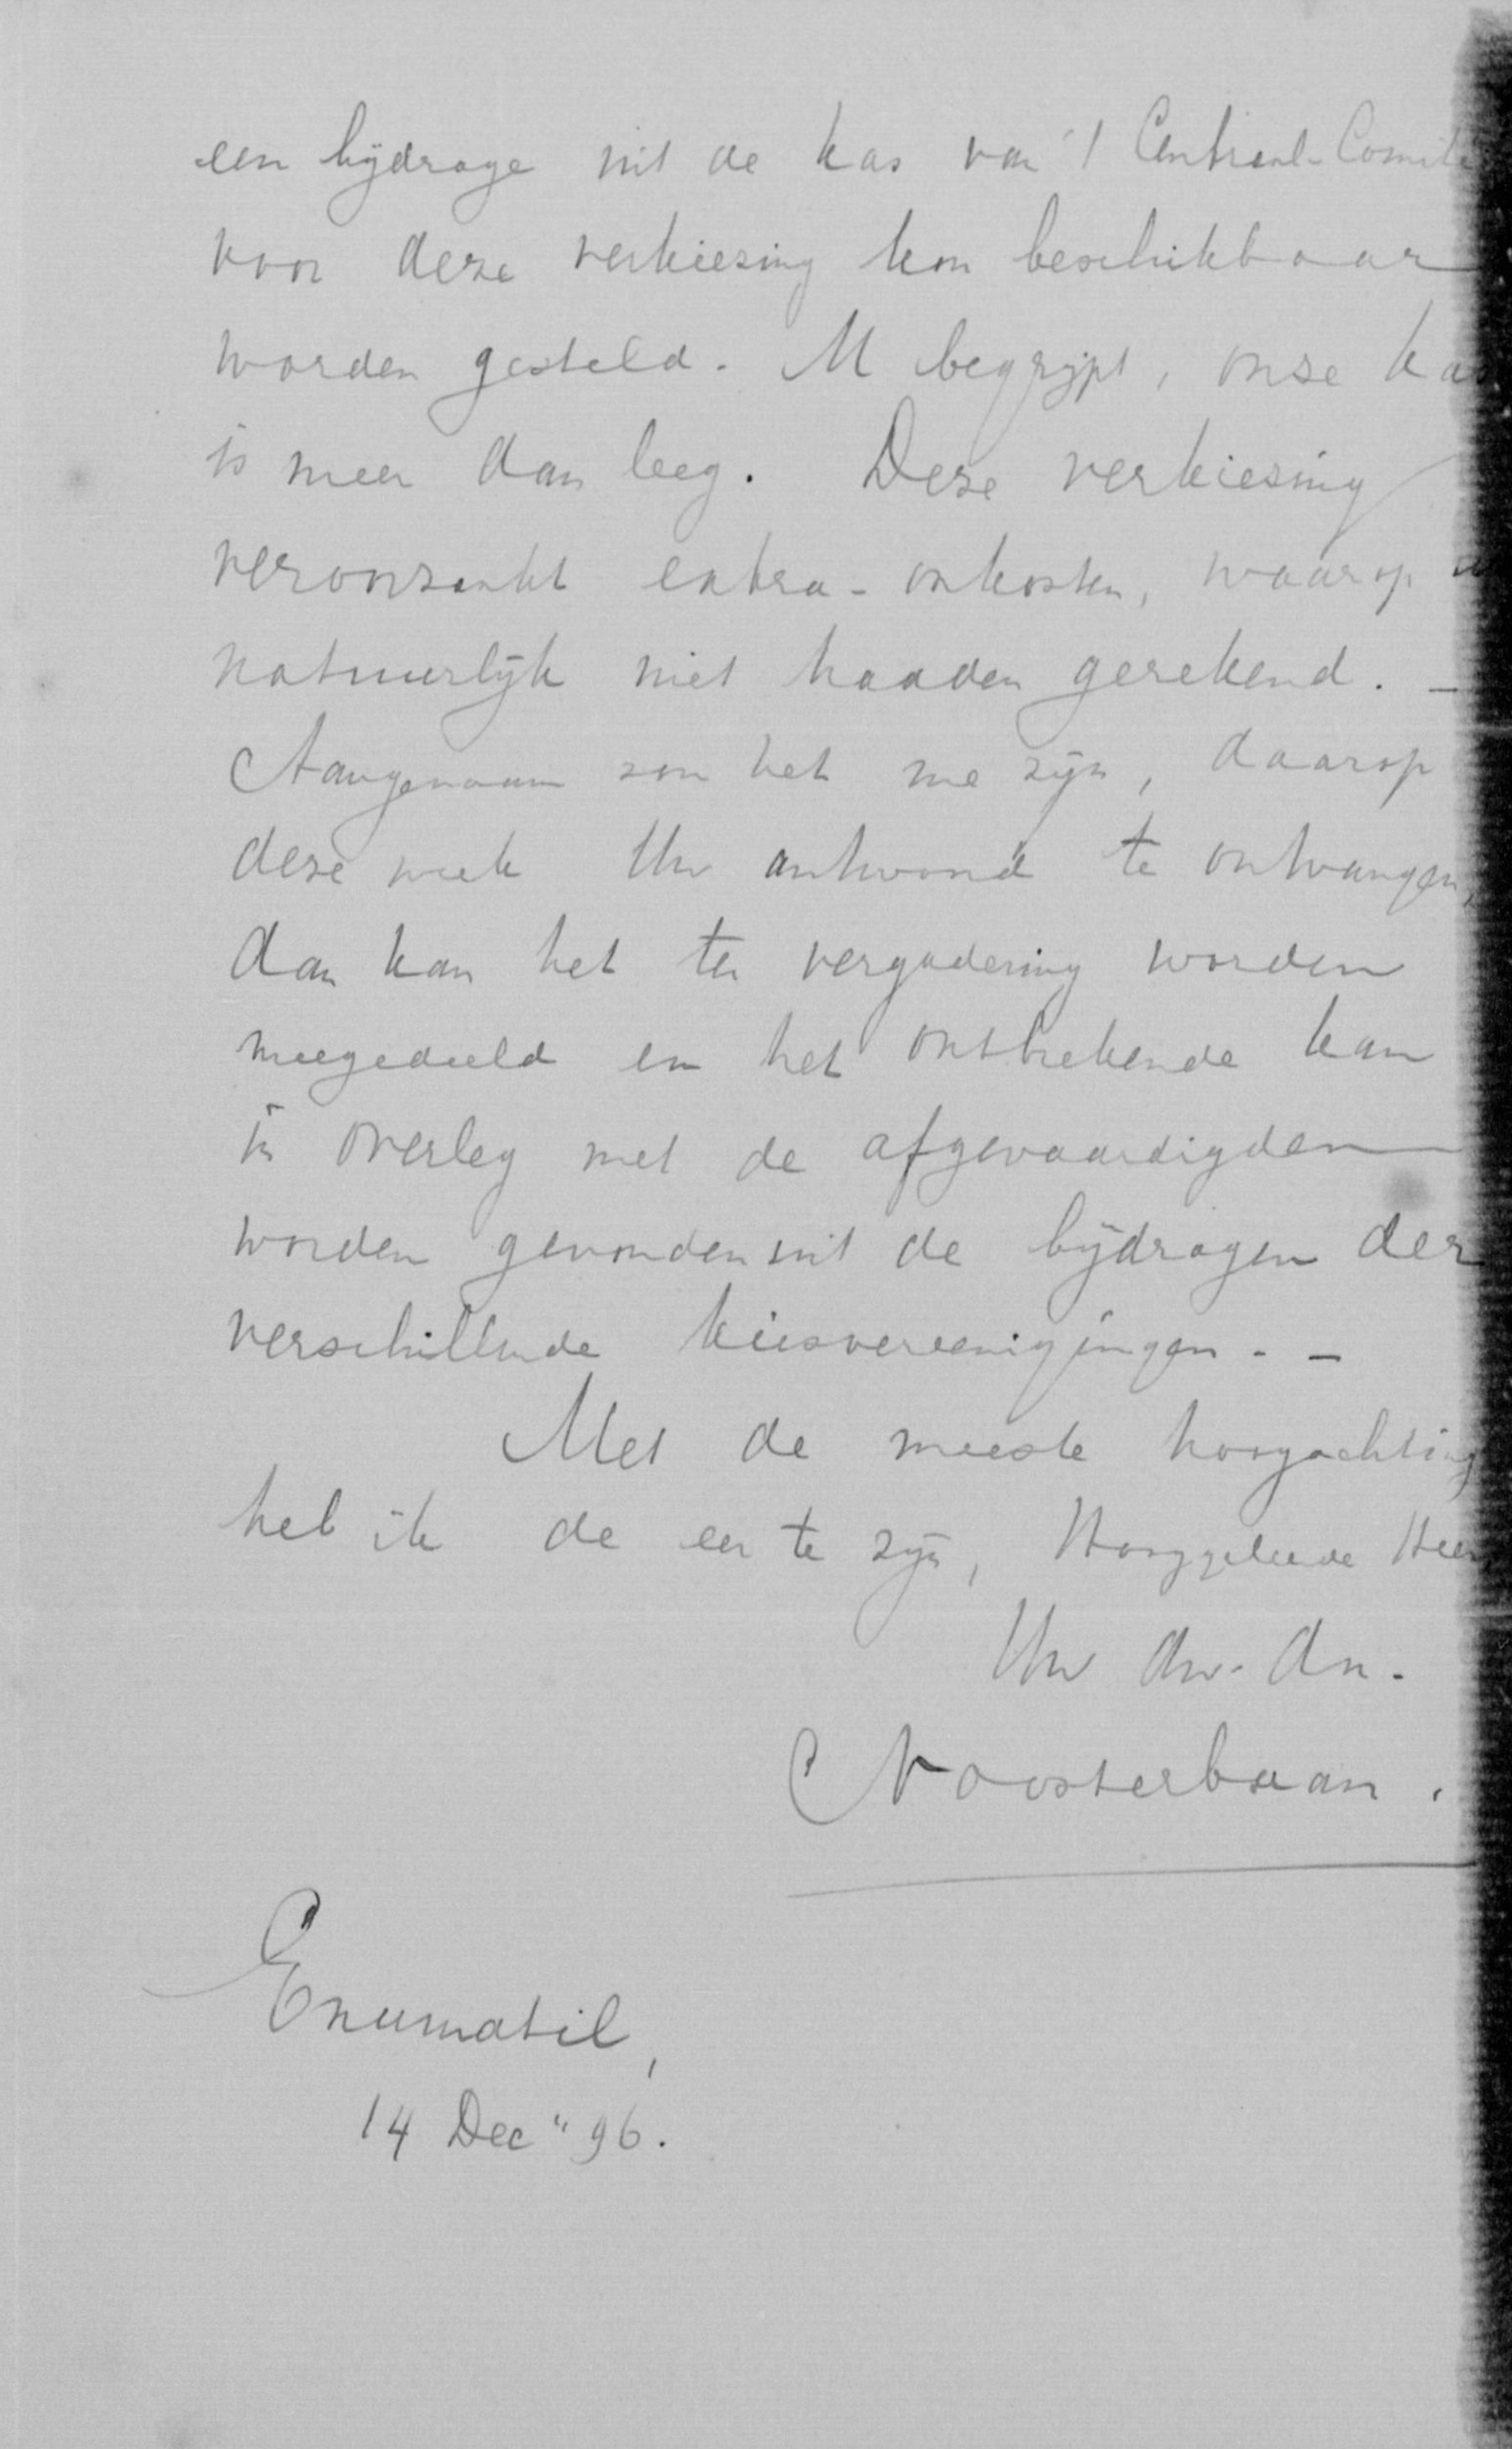 een bijdrage uit de kas van 't Centraal-Comité
voor deze verkiezing kon beschikbaar
worden gesteld. U begrijpt, onze kas
is meer dan leeg. Deze verkiezing
veroorzaakt extra-onkosten, waarop
natuurlijk niet hadden gerekend. –
Aangenaam zou het me zijn, daarop
deze week Uw antwoord te ontvangen,
dan kan het ter vergadering worden
meegedeeld en het ontbrekende kan
in overleg met de afgevaardigden
worden gevonden uit de bijdragen der
verschillende kiesvereenigingen. –
Met de meeste hoogachting
heb ik de eer te zijn, Hooggeleerde Heer,
Uw dw. dn.
Noosterbaan.
Enumatil,
14 Dec "96.